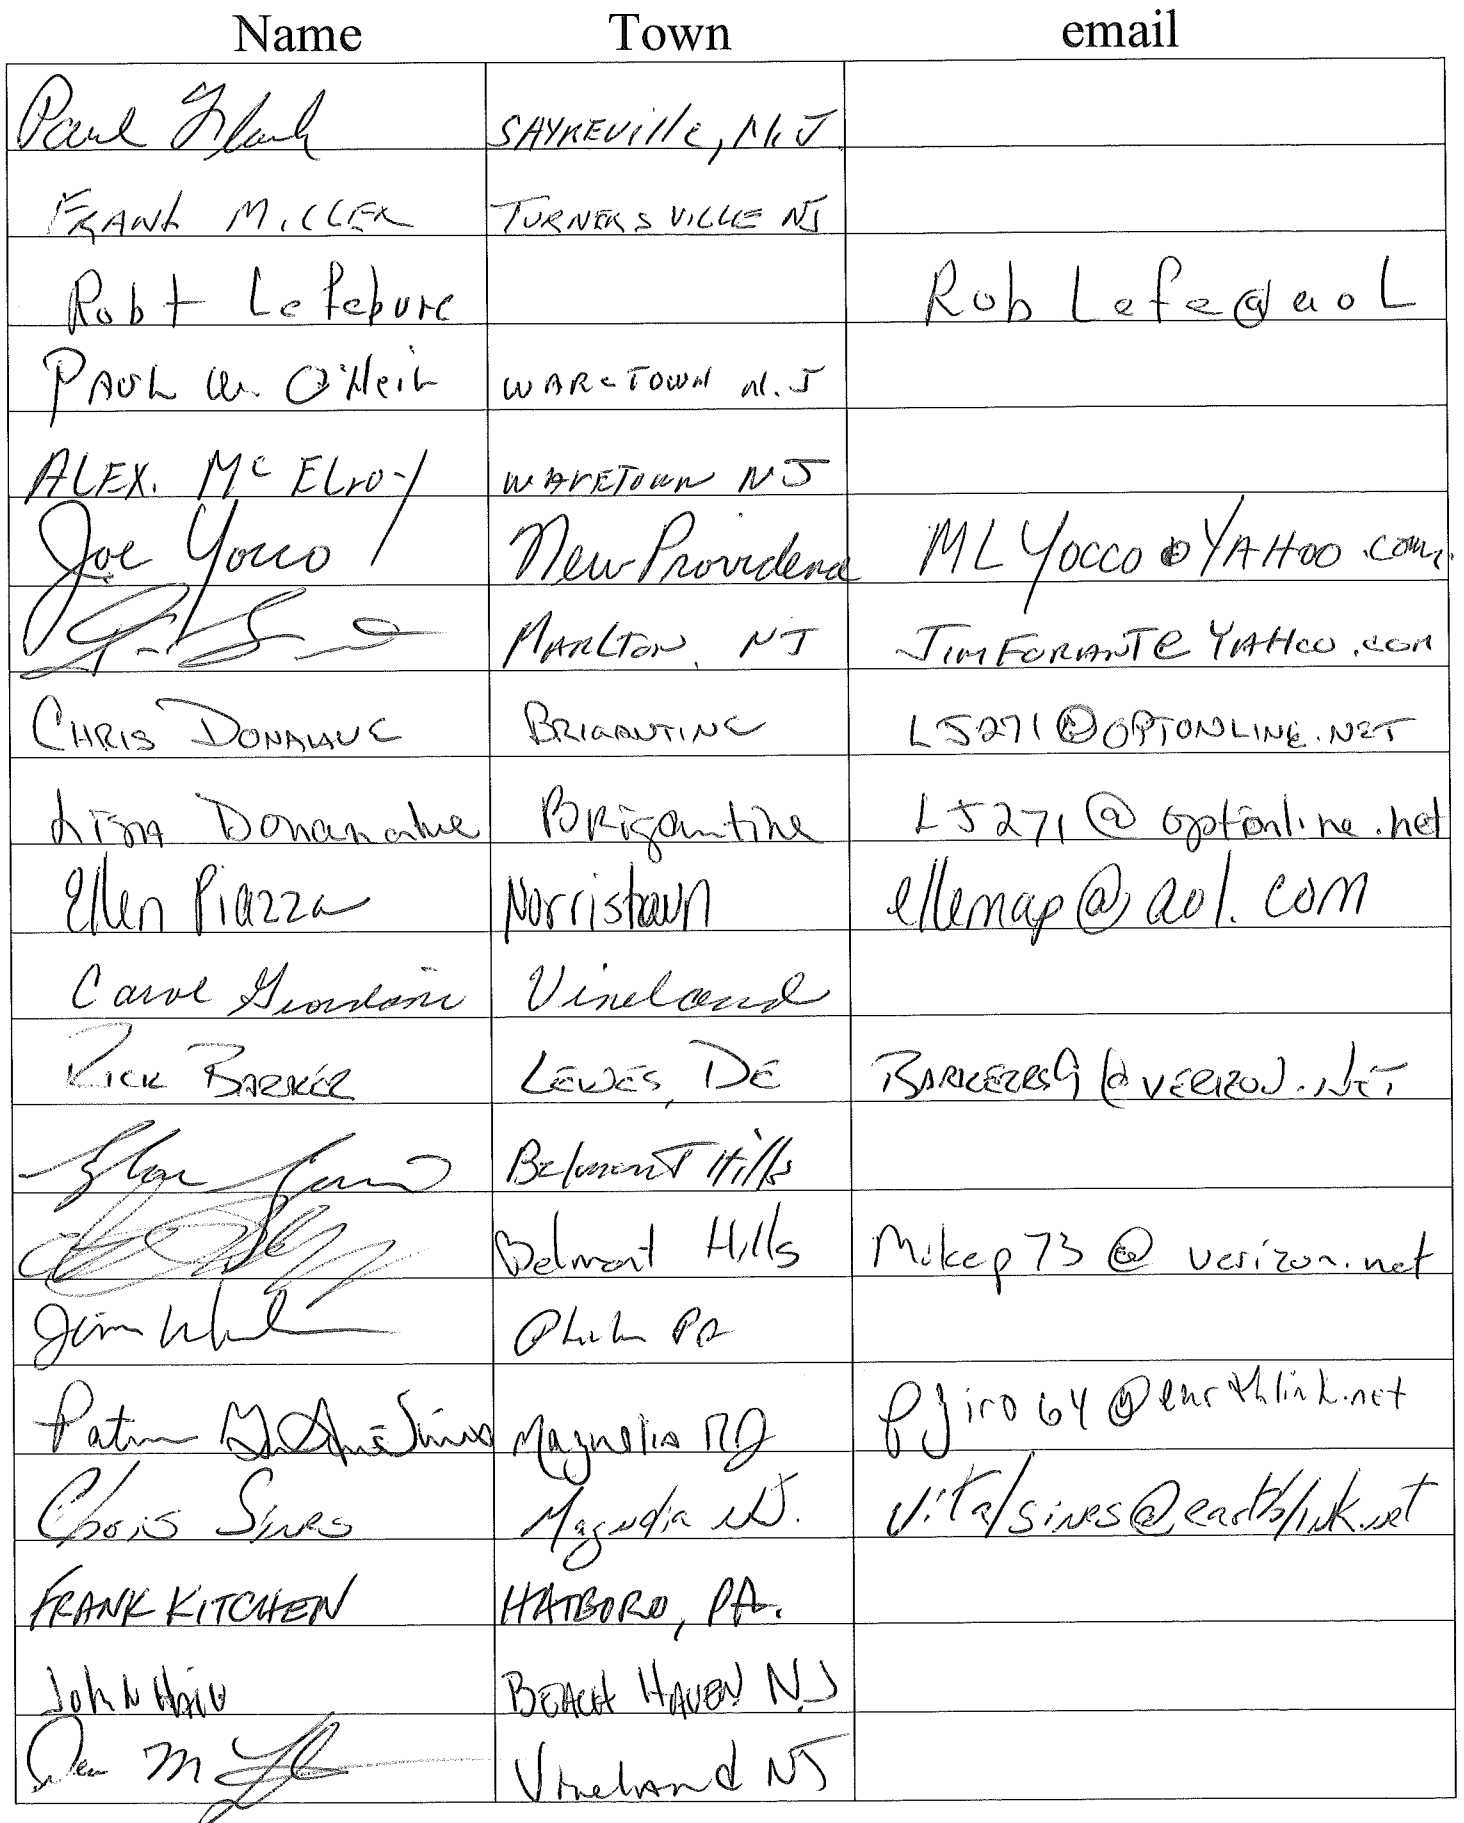 Name Town email
Paul SAYREVille, N.J.
FRANK MILLER TURNERSVILLE NJ
Robt Lefebvre Rob Lefe@aol
PAUL W. O'Neil WARETOWN N.J
ALEX. McElroy WARETOWN NJ
Joe Yocco New Providence MLYocco@YAHOO.com
MARLTON, NJ JIMFORANT@YAHOO.COM
CHRIS DONAHUE BRIGANTINE LJ271@OPTONLINE.NET
Lisa Donanahue BRigantine LJ271@optonline.net
Ellen Piazza Norristown ellemap@aol.com
Carol Giordano Vineland
RICK BARKER LEWES, DE BARKERRS9@VERIZON.NET
Belmont Hills
Belmont Hills Mikep73@verizon.net
Jim Phila PA
Magnolia NJ pjiro64@earthlink.net
Chris Sines Magnolia NJ. Vitalsines@earthlink.net
FRANK KITCHEN HATBORO, PA.
John BEACH HAVEN NJ
M Vineland NJ